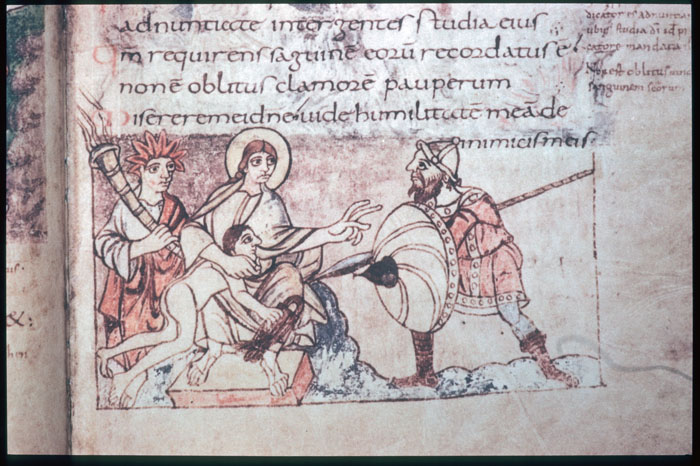 adnuntiate inter gentes studia eius
Qm̄ requirens saguinē eorū recordatus ē
non ē oblitus clamorē pauperum
Miserere mei dne uide humilitatē meā de
inimicis meis
studia di id
Non est oblitus
sanguinem eorum